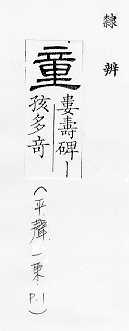 隸辨
童
婁壽碑｜
孩多奇
(平聲一東 P.1)